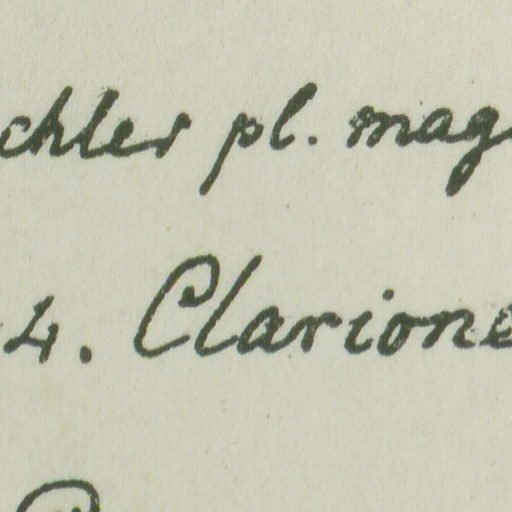 chler pl. mag
4. Clarione